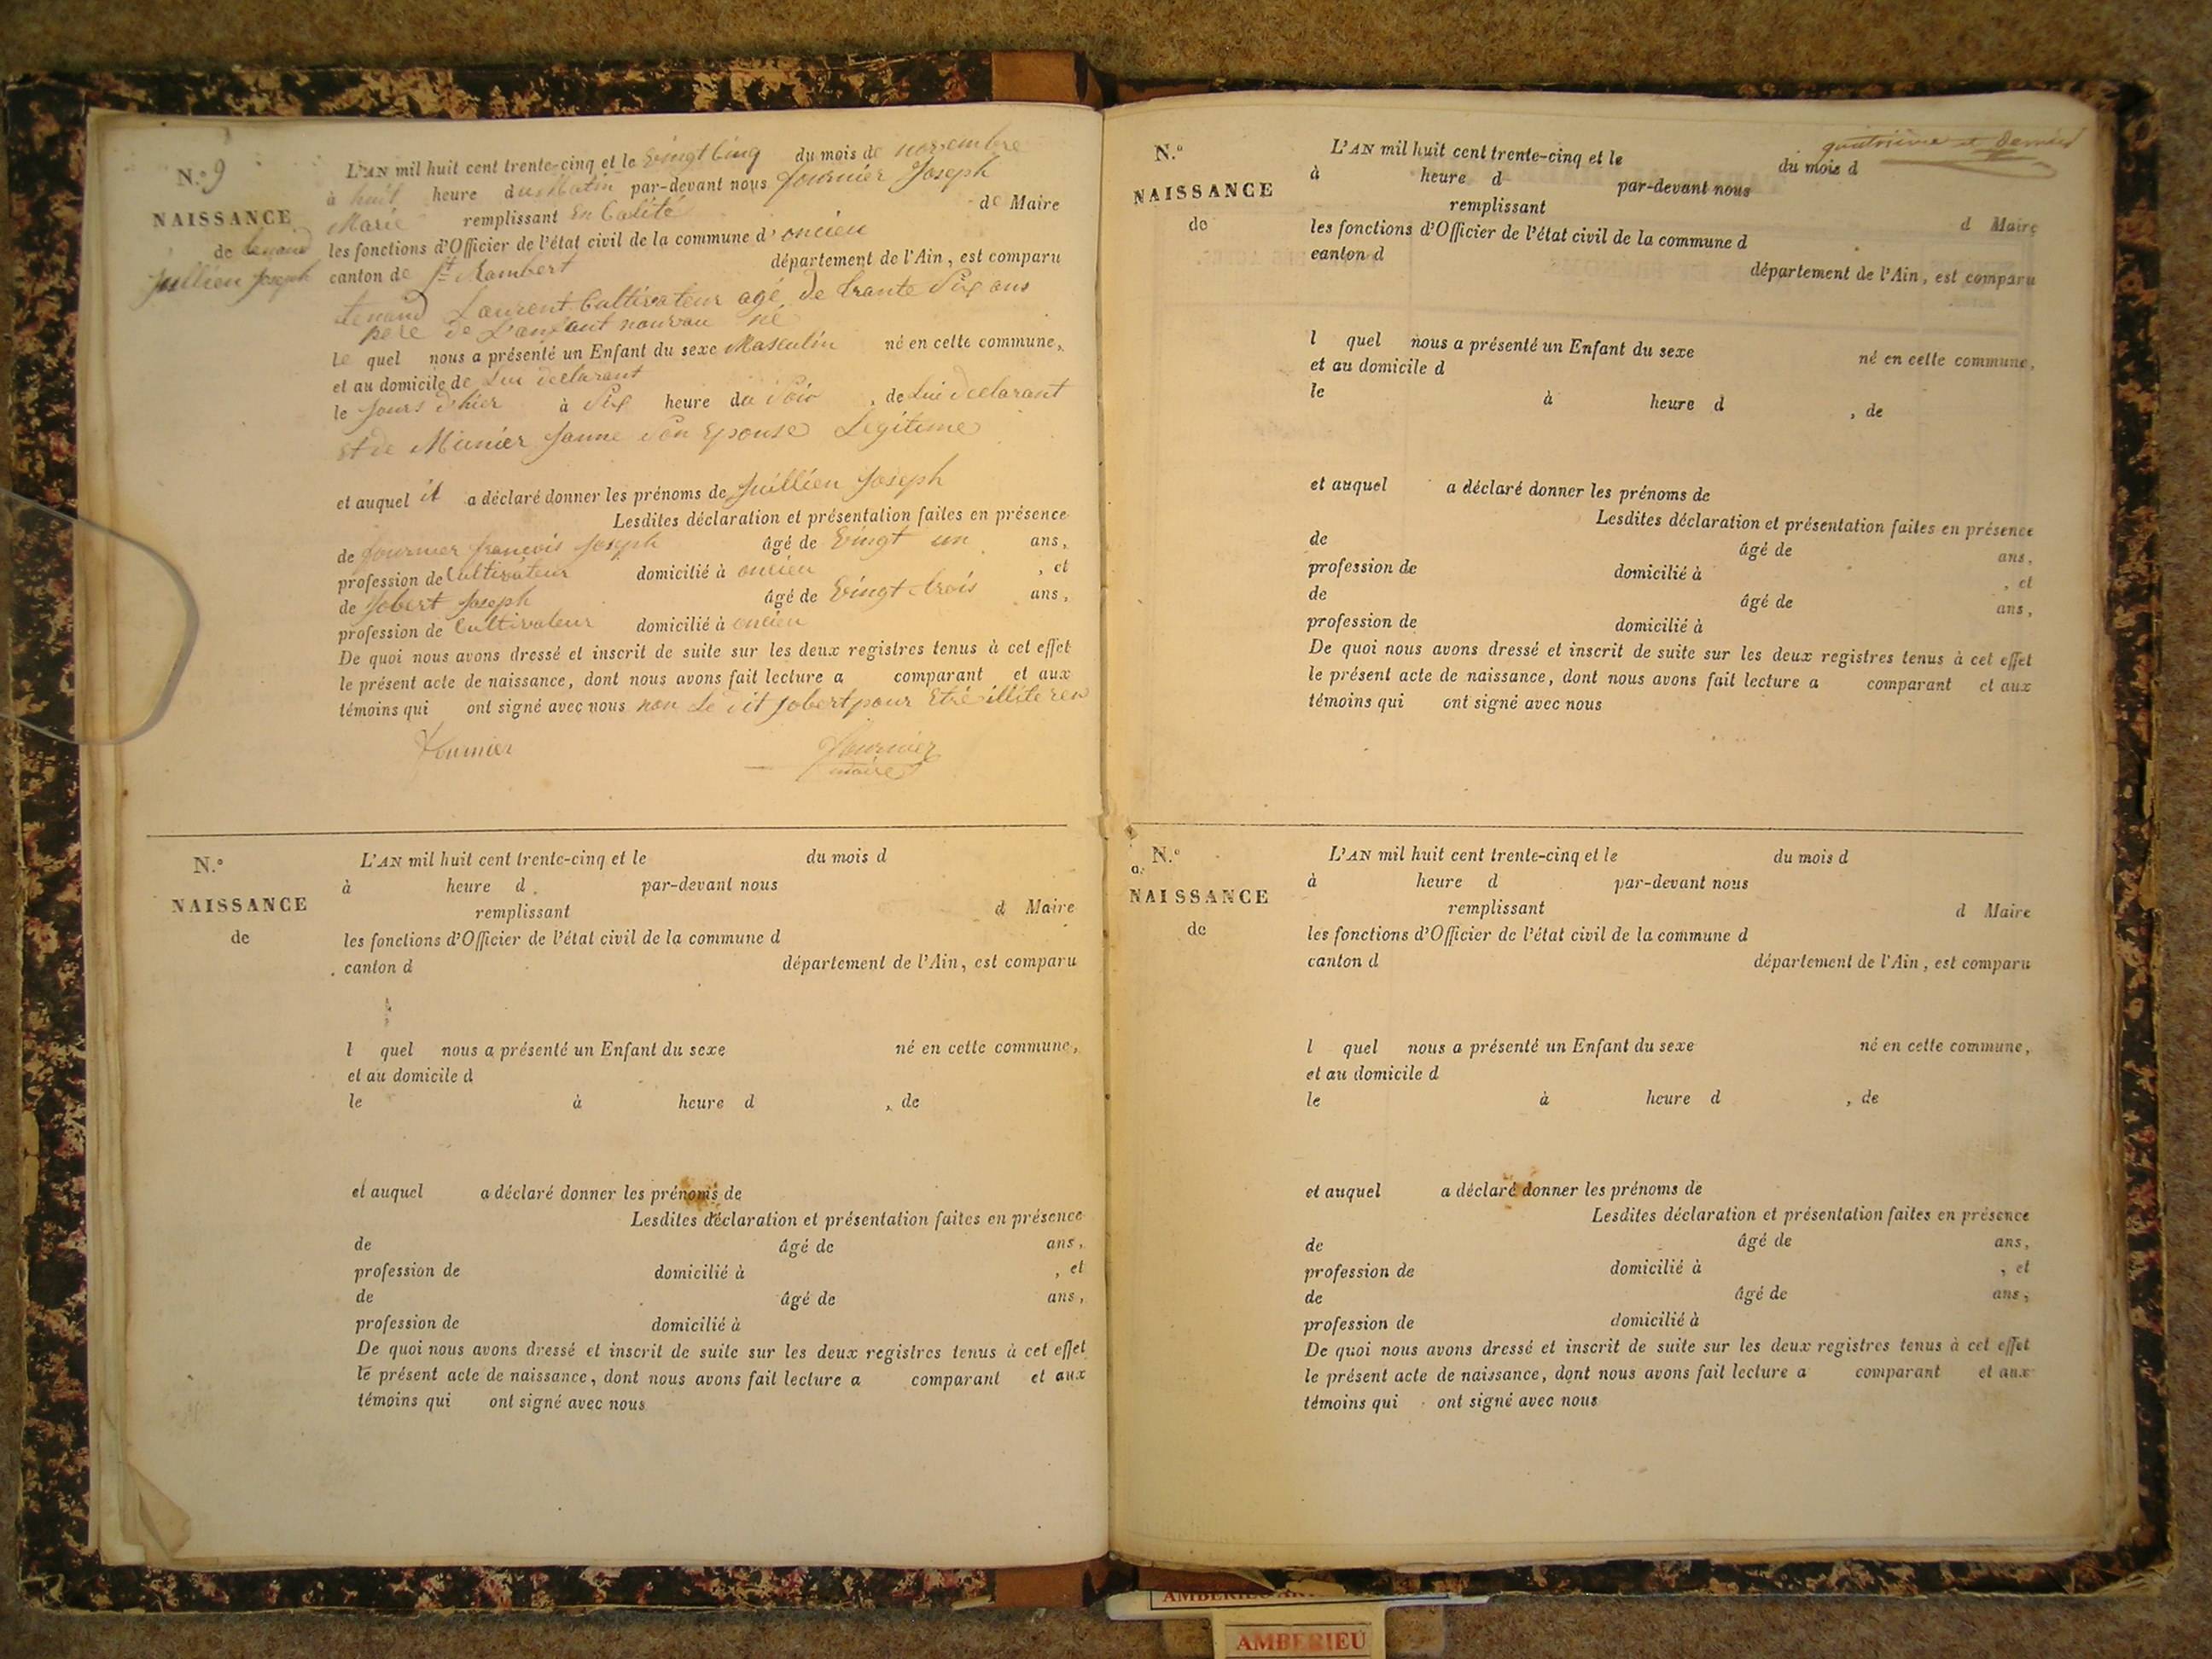 N.º 9
NAISSANCE
de tenand
Jullien Joseph
L'AN mil huit cent trente-cinq et le Vingt Cinq du mois de novembre
à huit heure du Matin par-devant nous fournier Joseph
Marie remplissant en Calité de Maire
les fonctions d'Officier de l'état civil de la commune d'oncieu
canton de St Rambert département de l'Ain, est comparu
tenand Laurent Cultivateur agé de trante Six ans
pere de L'anfant nouveau né
le quel nous a présenté un Enfant du sexe Masculin né en cette commune,
et au domicile de Lui declarant
le jours d'hier à Six heure du Soir, de Lui declarant
et de Munier Janne Son Epouse Legitime
et auquel il a déclaré donner les prénoms de Juillien Joseph
Lesdites déclaration et présentation faites en présence
de fournier françois Joseph âgé de Vingt un ans,
profession de Cultivateur domicilié à oncieu, et
de Jobert Joseph âgé de Vingt trois ans,
profession de Cultivateur domicilié à oncieu
De quoi nous avons dressé et inscrit de suite sur les deux registres tenus à cet effet
le présent acte de naissance, dont nous avons fait lecture a comparant et aux
témoins qui ont signé avec nous non Le dit Jobert pour Etre illiteren
fournier
fournier
maire
N.º
NAISSANCE
de
L'AN mil huit cent trente-cinq et le du mois d
à heure d par-devant nous
remplissant d Maire
les fonctions d'Officier de l'état civil de la commune d
canton d département de l'Ain, est comparu
l quel nous a présenté un Enfant du sexe né en cette commune,
et au domicile d
le à heure d , de
et auquel a déclaré donner les prénoms de
Lesdites déclaration et présentation faites en présence
de âgé de ans,
profession de domicilié à , et
de âgé de ans,
profession de domicilié à
De quoi nous avons dressé et inscrit de suite sur les deux registres tenus à cet effet
le présent acte de naissance, dont nous avons fait lecture a comparant et aux
témoins qui ont signé avec nous
quatrième et dernier
N.º
NAISSANCE
de
L'AN mil huit cent trente-cinq et le du mois d
à heure d par-devant nous
remplissant d Maire
les fonctions d'Officier de l'état civil de la commune d
canton d département de l'Ain, est comparu
l quel nous a présenté un Enfant du sexe né en cette commune,
et au domicile d
le à heure d , de
et auquel a déclaré donner les prénoms de
Lesdites déclaration et présentation faites en présence
de âgé de ans,
profession de domicilié à , et
de âgé de ans,
profession de domicilié à
De quoi nous avons dressé et inscrit de suite sur les deux registres tenus à cet effet
le présent acte de naissance, dont nous avons fait lecture a comparant et aux
témoins qui ont signé avec nous
N.º
NAISSANCE
de
L'AN mil huit cent trente-cinq et le du mois d
à heure d par-devant nous
remplissant d Maire
les fonctions d'Officier de l'état civil de la commune d
canton d département de l'Ain, est comparu
l quel nous a présenté un Enfant du sexe né en cette commune,
et au domicile d
le à heure d , de
et auquel a déclaré donner les prénoms de
Lesdites déclaration et présentation faites en présence
de âgé de ans,
profession de domicilié à , et
de âgé de ans,
profession de domicilié à
De quoi nous avons dressé et inscrit de suite sur les deux registres tenus à cet effet
le présent acte de naissance, dont nous avons fait lecture a comparant et aux
témoins qui ont signé avec nous
AMBERIEU
AMBERIEU